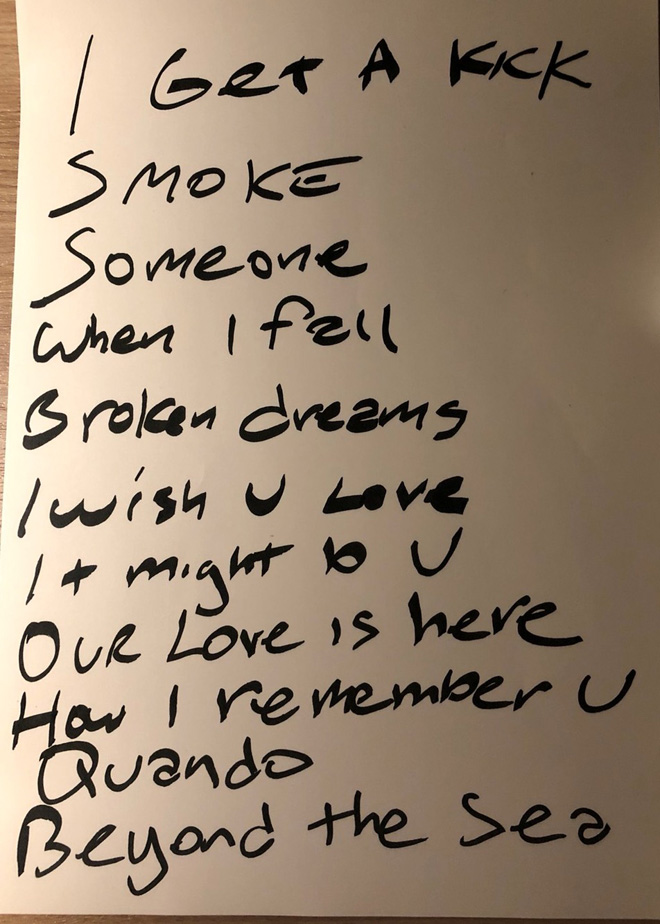 I Get A Kick
SMOKE
Someone
When I fall
Broken dreams
I wish U Love
It might b U
Our Love is here
How I remember U
Quando
Beyond the Sea